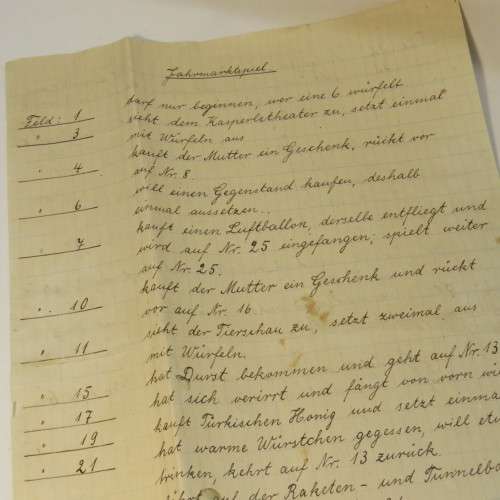 Jahrmarktspiel
Feld: 1 darf nur beginnen, wer eine 6 würfelt
" 3 sieht dem Kasperletheater zu, setzt einmal
mit Würfeln aus
" 4 kauft der Mutter ein Geschenk, rückt vor
auf Nr. 8
" 6 will einen Gegenstand kaufen, deshalb
einmal aussetzen.
" 7 kauft einen Luftballon, derselbe entfliegt und
wird auf Nr. 25 eingefangen; spielt weiter
auf Nr. 25.
" 10 kauft der Mutter ein Geschenk und rückt
vor auf Nr. 16.
" 11 sieht der Tierschau zu, setzt zweimal aus
mit Würfeln.
" 15 hat Durst bekommen und geht auf Nr. 13
" 17 hat sich verirrt und fängt von vorn
" 19 kauft Türkischen Honig und setzt einma
" 21 hat warme Würstchen gegessen, will
trinken, kehrt auf Nr. 13 zurück.
fährt auf der Raketen- und Tunnelba